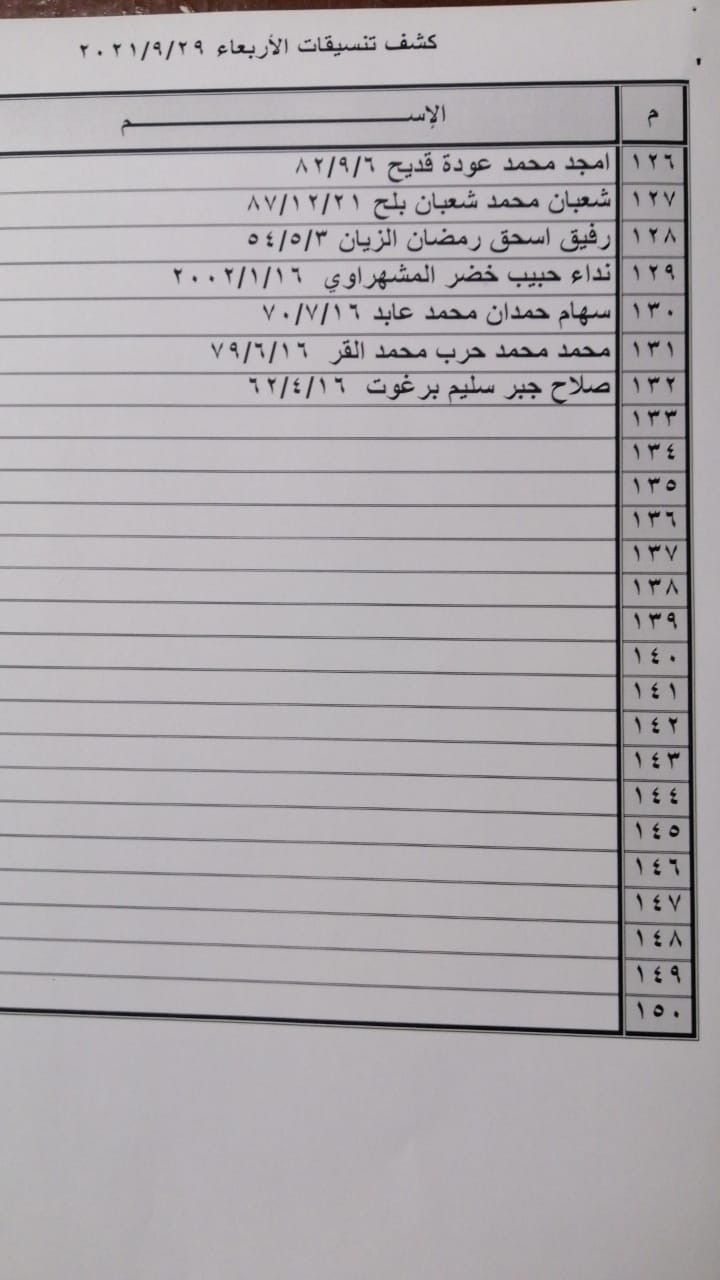 كشف تنسيقات الأربعاء ٢٠٢١/٩/٢٩
م الإســـــــــــــم
١٢٦ امجد محمد عودة قديح ٨٢/٩/٦
١٢٧ شعبان محمد شعبان بلح ٨٧/١٢/٢١
١٢٨ رفيق اسحق رمضان الزيان ٥٤/٥/٣
١٢٩ نداء حبيب خضر المشهراوي ٢٠٠٢/١/١٦
١٣٠ سهام حمدان محمد عابد ٧٠/٧/١٦
١٣١ محمد محمد حرب محمد القر ٧٩/٦/١٦
١٣٢ صلاح جبر سليم برغوت ٦٢/٤/١٦
١٣٣
١٣٤
١٣٥
١٣٦
١٣٧
١٣٨
١٣٩
١٤٠
١٤١
١٤٢
١٤٣
١٤٤
١٤٥
١٤٦
١٤٧
١٤٨
١٤٩
١٥٠